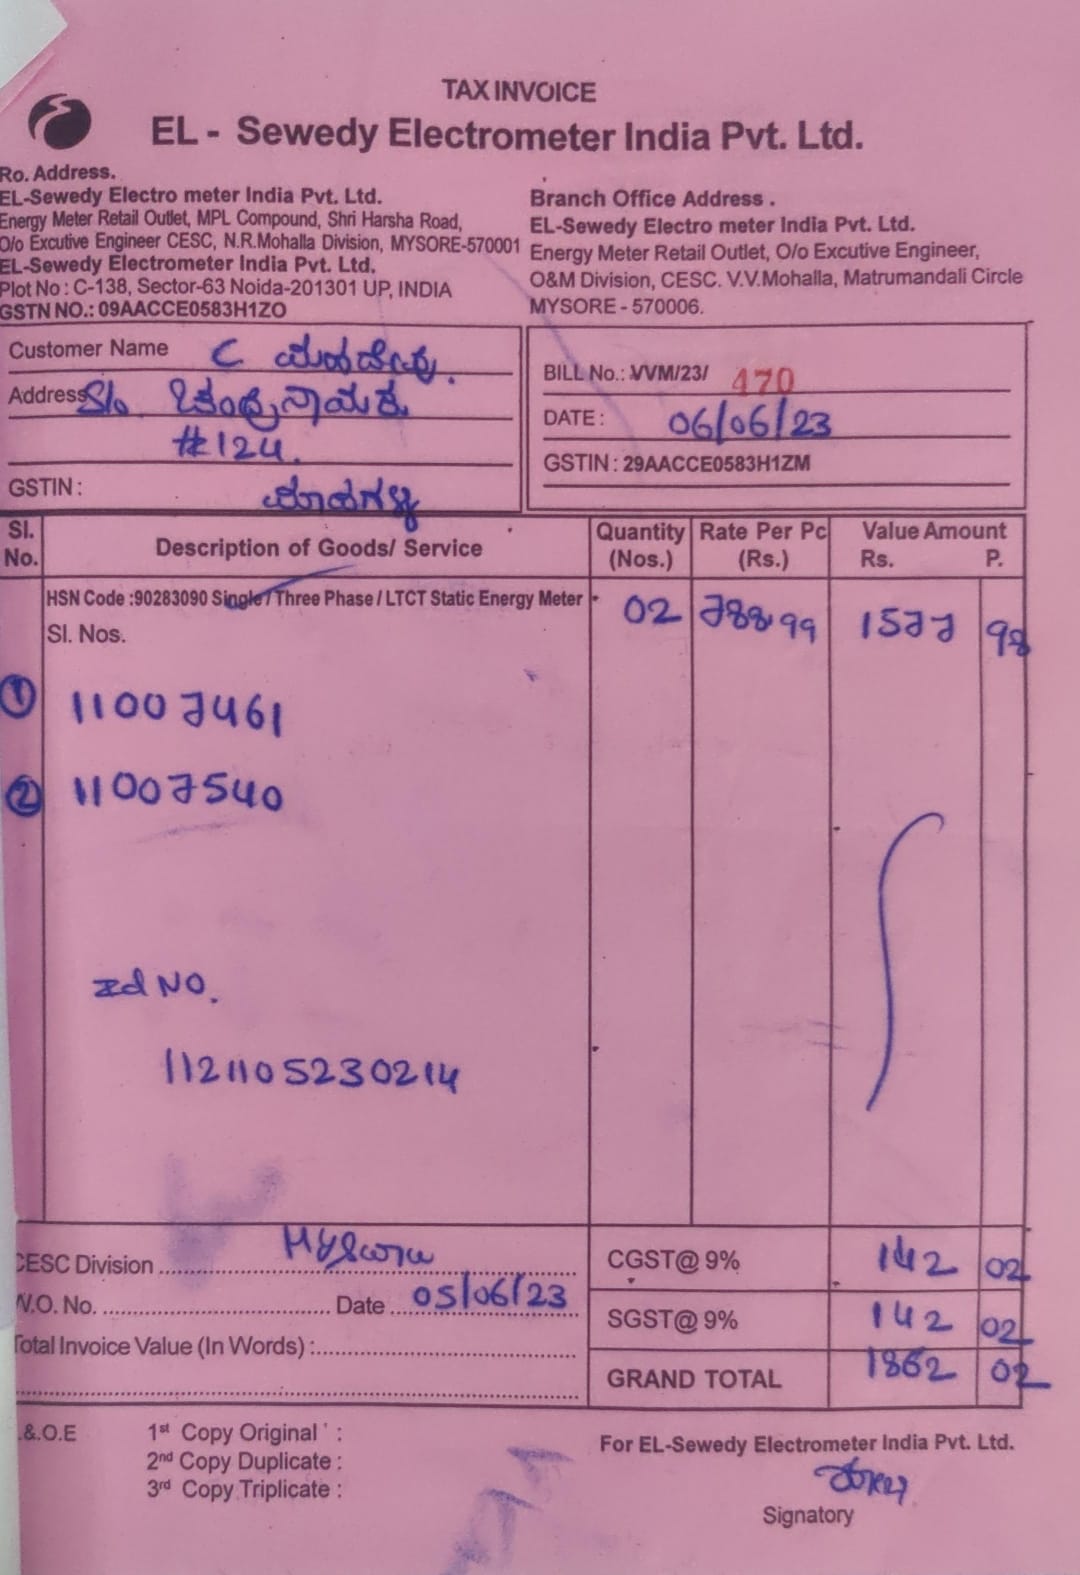 TAX INVOICE
EL - Sewedy Electrometer India Pvt. Ltd.
Ro. Address.
EL-Sewedy Electro meter India Pvt. Ltd.
Energy Meter Retail Outlet, MPL Compound, Shri Harsha Road,
O/o Excutive Engineer CESC, N.R.Mohalla Division, MYSORE-570001
EL-Sewedy Electrometer India Pvt. Ltd.
Plot No : C-138, Sector-63 Noida-201301 UP, INDIA
GSTN NO.: 09AACCE0583H1ZO
Branch Office Address .
EL-Sewedy Electro meter India Pvt. Ltd.
Energy Meter Retail Outlet, O/o Excutive Engineer,
O&M Division, CESC. V.V.Mohalla, Matrumandali Circle
MYSORE - 570006.
Customer Name C
Address S/o ಚಂದ್ರನಾಯಕ
#124.
GSTIN :
BILL No.: VVM/23/ 470
DATE : 06/06/23
GSTIN : 29AACCE0583H1ZM
Sl. No. Description of Goods/ Service Quantity (Nos.) Rate Per Pc (Rs.) Value Amount Rs. P.
HSN Code :90283090 Single / Three Phase / LTCT Static Energy Meter 02 788.99 1577 98
Sl. Nos.
① 11007461
② 11007540
Id NO.
1121105230214
CESC Division Mysore
W.O. No. Date 05/06/23
Total Invoice Value (In Words) :
CGST@ 9% 142 02
SGST@ 9% 142 02
GRAND TOTAL 1862 02
.&.O.E
1st Copy Original :
2nd Copy Duplicate :
3rd Copy Triplicate :
For EL-Sewedy Electrometer India Pvt. Ltd.
Signatory